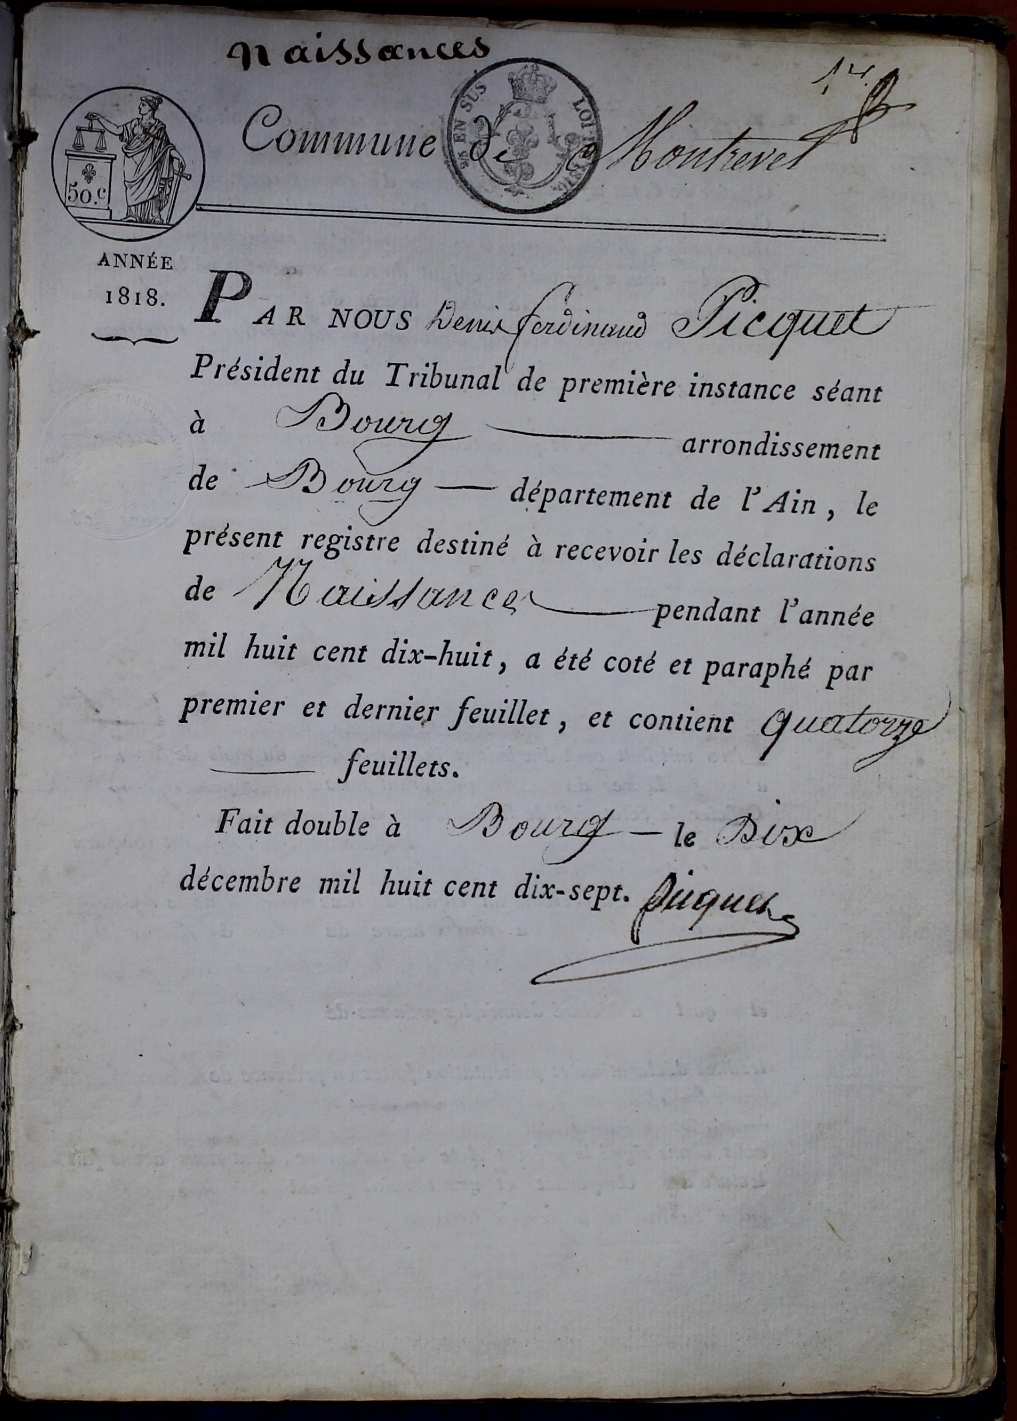 Naissances
Commune de Montrevel
50.c
EN SUS
LOI
ANNÉE
1818.
PAR NOUS Denis ferdinand Picquet
Président du Tribunal de première instance séant
à Bourg — arrondissement
de Bourg — département de l'Ain, le
présent registre destiné à recevoir les déclarations
de Naissances — pendant l'année
mil huit cent dix-huit, a été coté et paraphé par
premier et dernier feuillet, et contient quatorze
— feuillets.
Fait double à Bourg — le Dix
décembre mil huit cent dix-sept. Picquet